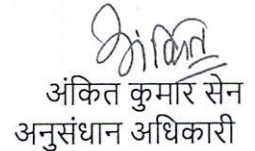 अंकित
अंकित कुमार सेन
अनुसंधान अधिकारी